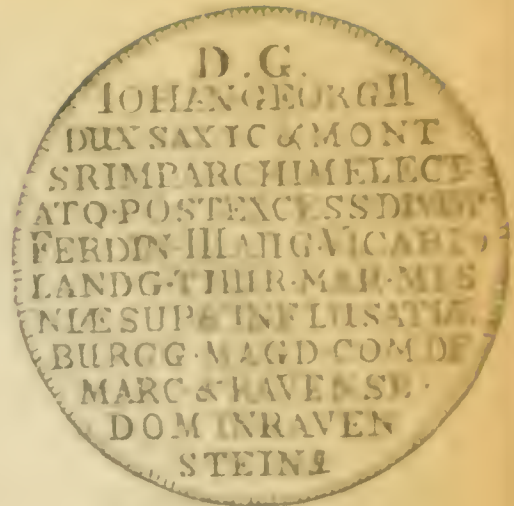 D . G .
IOHAN GEORG II
DUX SAX IC & MONT
SRIMPARCHIMELECT
ATQ·POSTEXCESSDIVI
FERDIN·III AUG·VICARI
LANDG·THUR·MAR·MIS
NIÆ SUP& INF LUSATIÆ
BURGG·MAGD COM DE
MARC & RAVENSB·
DOM INRAVEN
STEIN